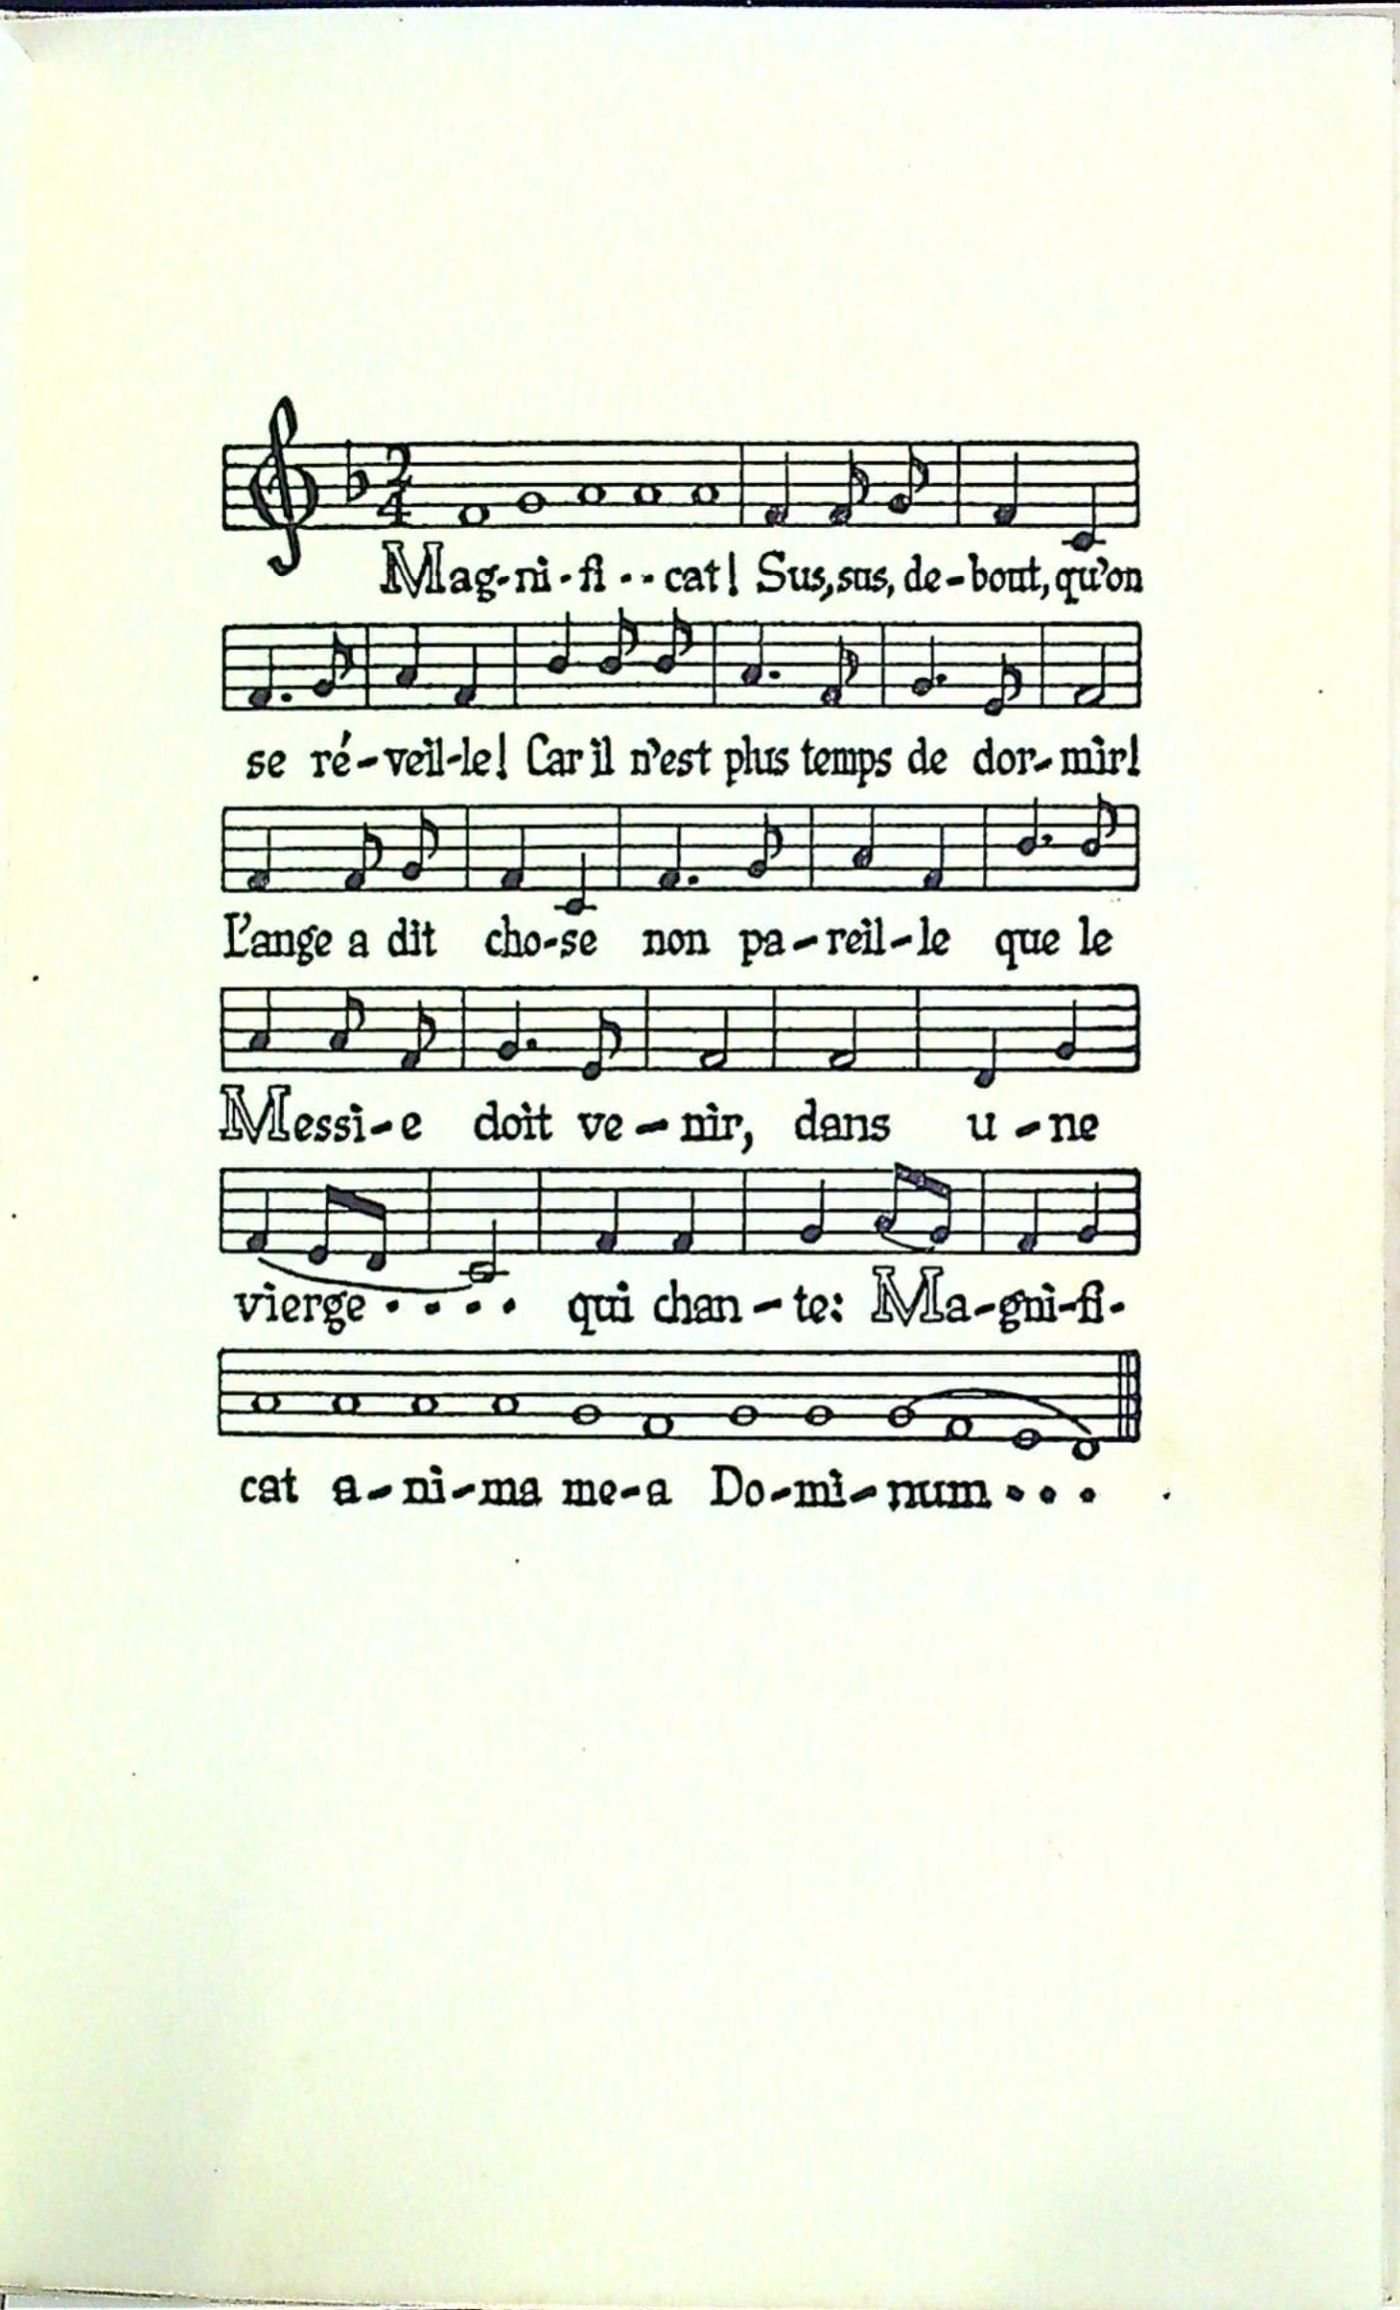 2
4
Mag-ni-fi--cat! Sus, sus, de-bout, qu'on
se ré-veil-le! Car il n'est plus temps de dor-mir!
L'ange a dit cho-se non pa-reil-le que le
Messi-e doit ve-nir, dans u-ne
vierge.... qui chan-te: Ma-gni-fi-
cat a-ni-ma me-a Do-mi-num...